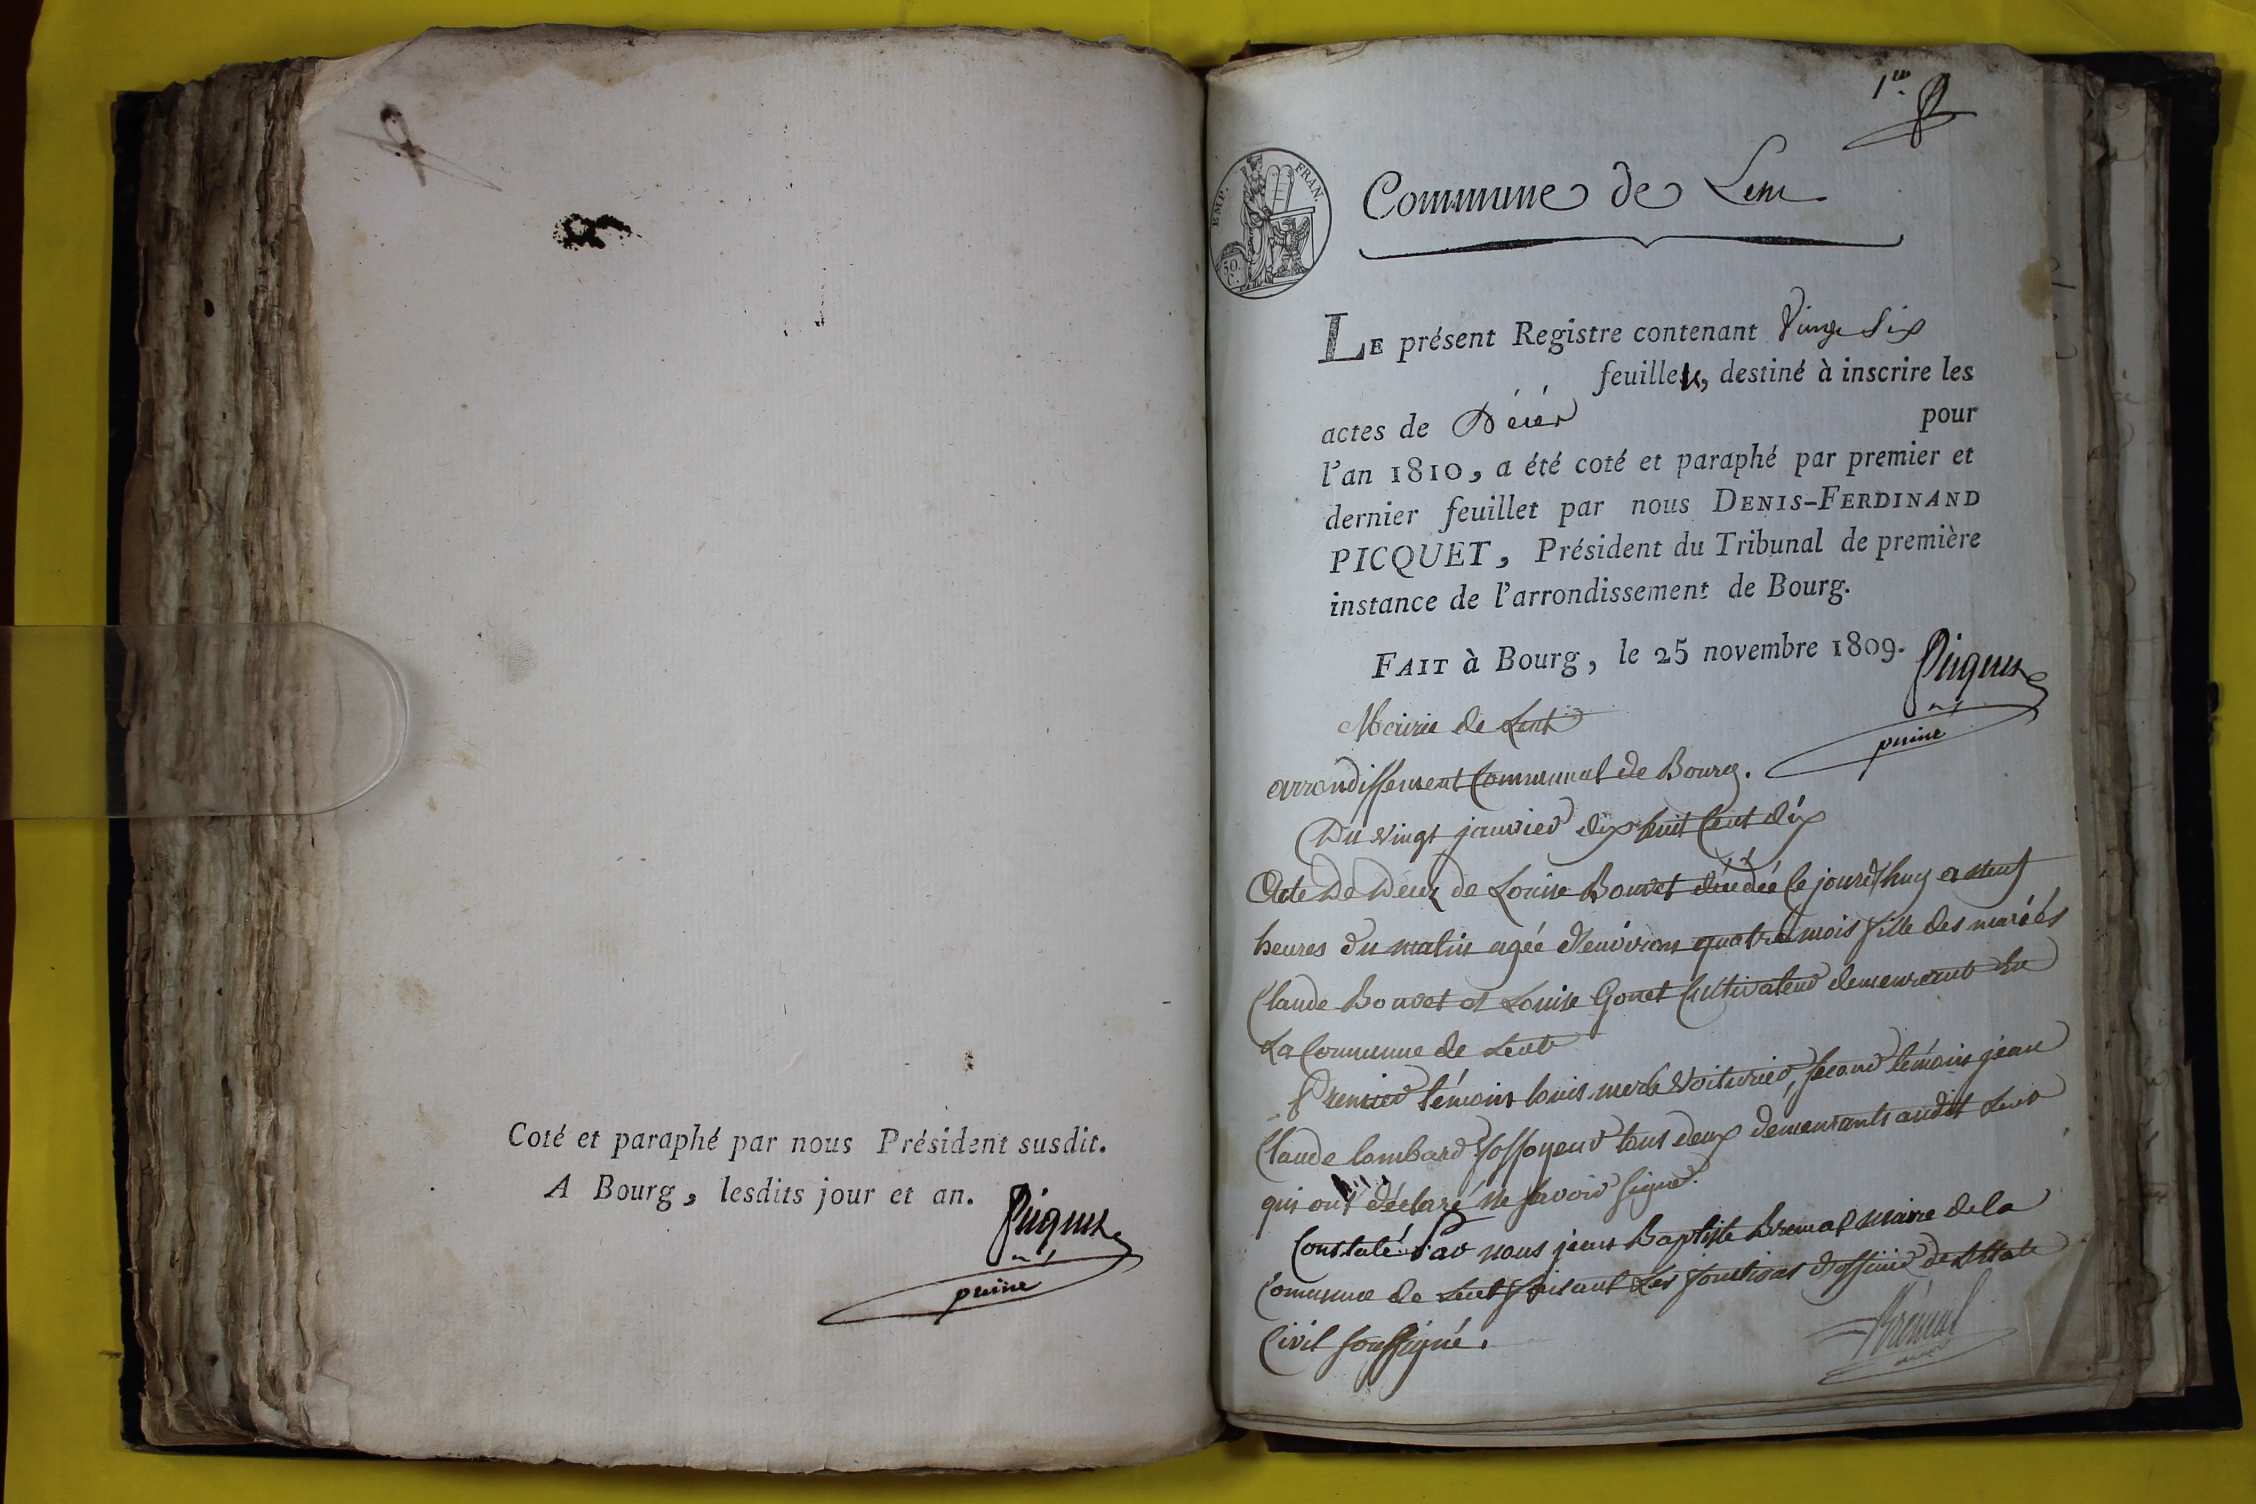 Coté et paraphé par nous Président susdit.
A Bourg, lesdits jour et an.
Picquet
puiné
1er
EMP. FRAN.
50. C.
Commune de Lent
LE présent Registre contenant vingt six
feuillets, destiné à inscrire les
actes de Décès pour
l'an 1810, a été coté et paraphé par premier et
dernier feuillet par nous DENIS-FERDINAND
PICQUET, Président du Tribunal de première
instance de l'arrondissement de Bourg.
FAIT à Bourg, le 25 novembre 1809.
Picquet
puiné
Mairie de Lent
arrondissement Communal de Bourg.
Du vingt janvier dix huit Cent dix
Acte De Décez de Louise Bouvet décédée Ce jourd'huy a neuf
heures du matin agée d'environ quatre mois fille des mariés
Claude Bouvet et Louise Gonet Cultivateur demeurant En
La Commune de Lent
Premier témoin louis merle Voiturier, second témoin jean
Claude lombard fossoyeur tous deux demeurants audit Lent
qui ont déclaré ne savoir signé.
Constaté Par nous jean Baptiste Brémal maire de la
Commune de Lent faisant Les fonctions d'officier de L'Etat
Civil soussigné.
Brémal